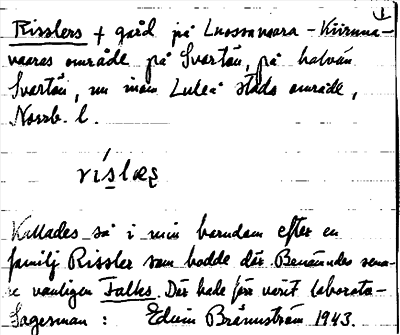 Risslers + gård på Luossavaara-Kiiruna-
vaaras område på Svartön, på halvön
Svartön, nu inom Luleå stads område,
Norrb. l.
ríslæṣ
Kallades så i min barndom efter en
familj Rissler som bodde där. Benämndes sena-
re vanligen Falks. Där hade förr varit laborato-
Sagesman: Edvin Brännström 1943.